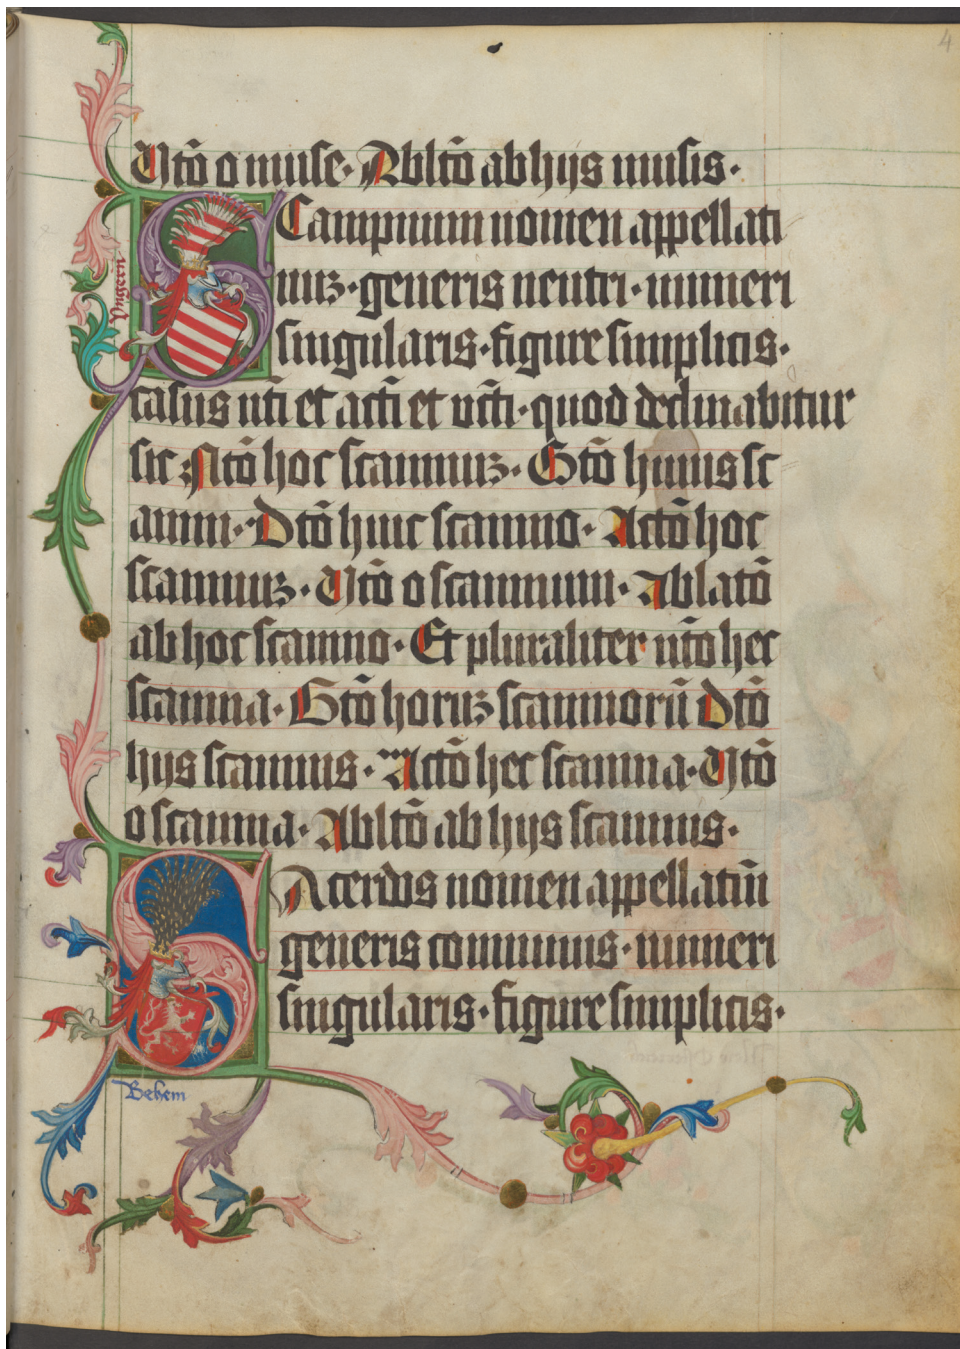 4
Vtō o muse· Abltō ab hijs musis·
Campnum nomen appellati
uuꝫ· generis neutri· numeri
singularis· figure simplicis·
Vngern
casus nti et acti et vcti· quod declinabitur
sic Ntō hoc scamnuꝫ· Gtō huius sc
amni· Dtō huic scamno· Actō hoc
scamnuꝫ· Vtō o scamnum· Ablatō
ab hoc scamno· Et pluraliter ntō hec
scamna· Gtō horuꝫ scamnorū Dtō
hijs scamnis· Actō hec scamna· Vtō
o scamna· Abltō ab hijs scamnis·
Acerdos nomen appellatiū
generis communis· numeri
singularis· figure simplicis·
Behem